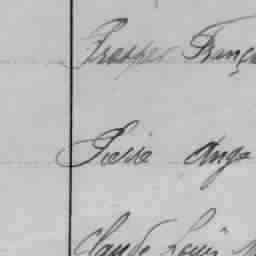 Prosper Franç
Pierre Ange
Claude Louis